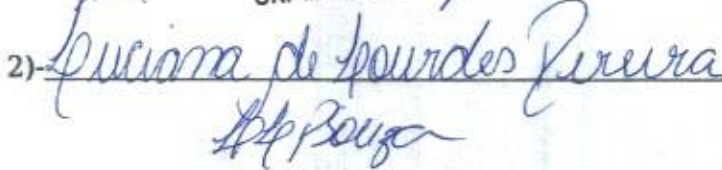 2)- Luciana de Lourdes Pereira
Souza